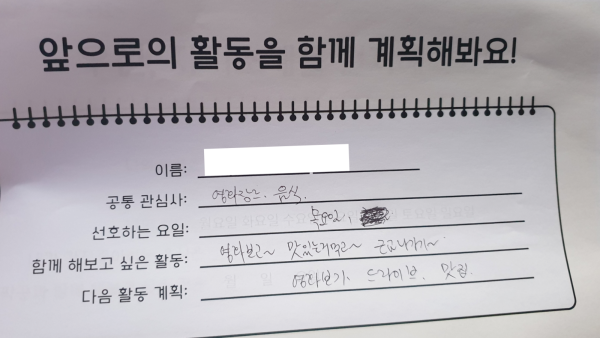 앞으로의 활동을 함께 계획해봐요!
이름:
공통 관심사: 영화장르, 음식.
선호하는 요일: 목요일,
함께 해보고 싶은 활동: 영화보고~ 맛있는거먹고~ 근교나가기~
다음 활동 계획: 영화보기, 드라이브, 맛집.